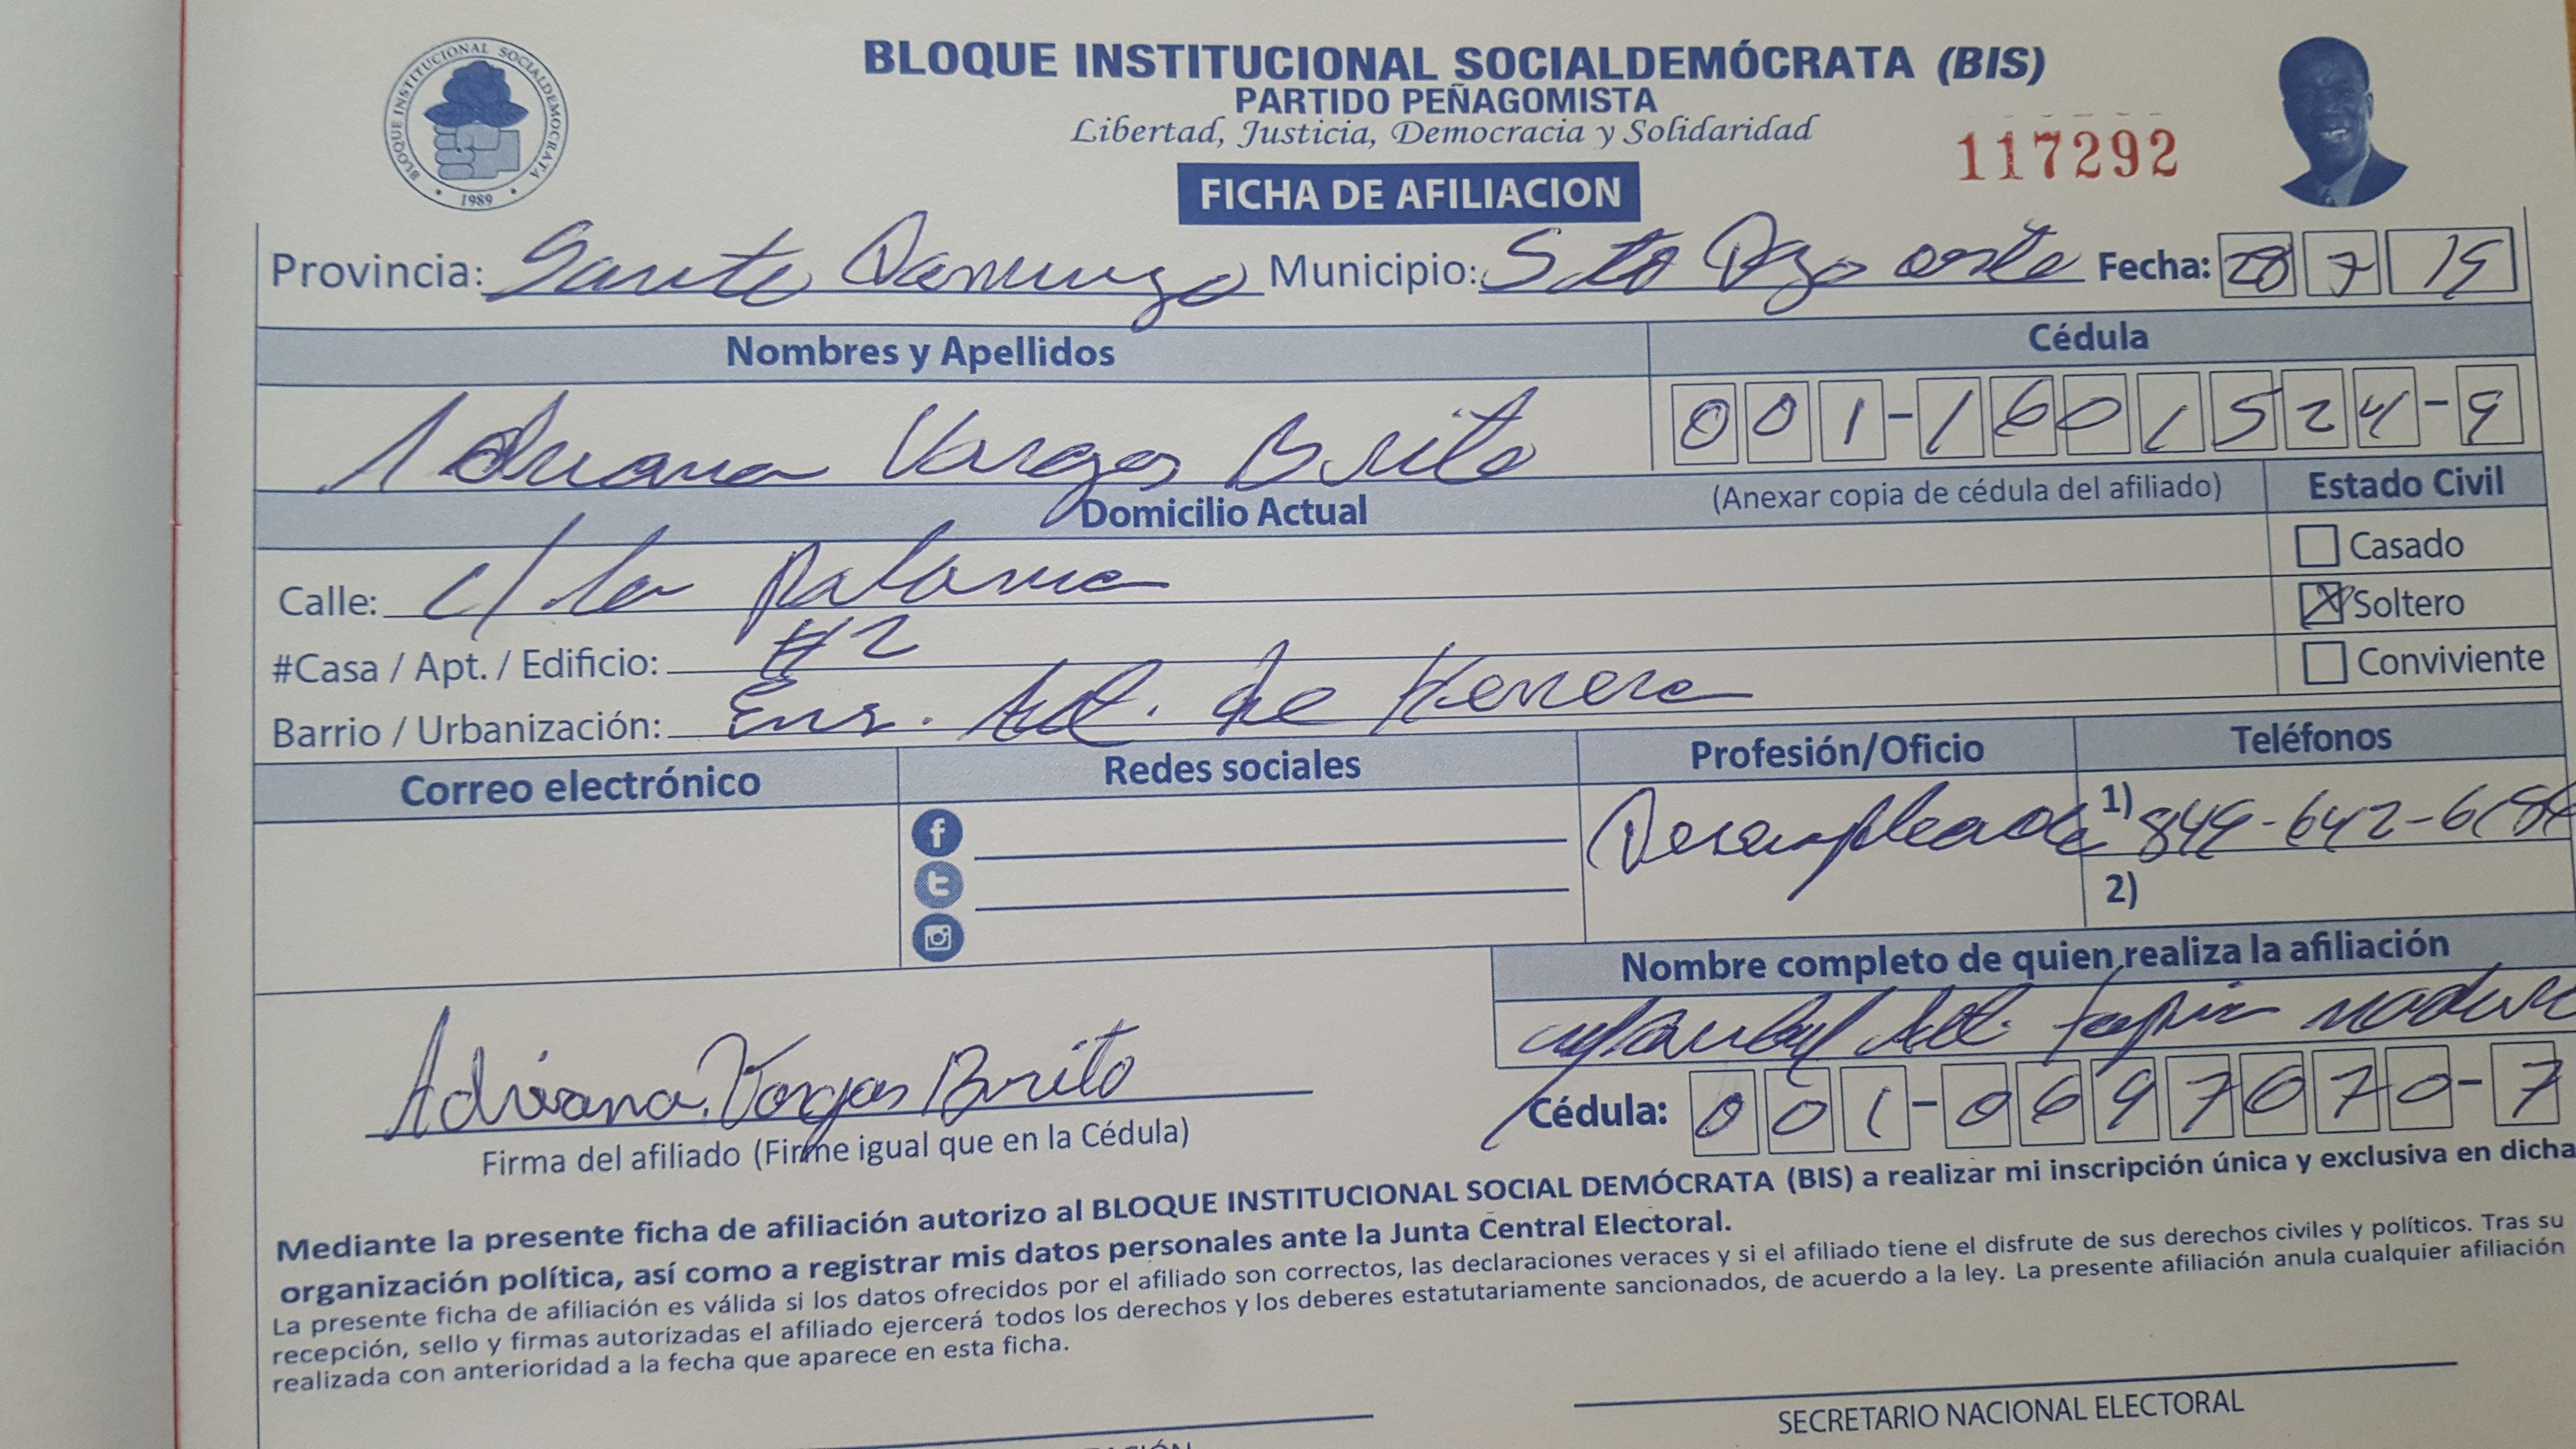 BLOQUE INSTITUCIONAL SOCIALDEMÓCRATA (BIS)
PARTIDO PEÑAGOMISTA
Libertad, Justicia, Democracia y Solidaridad
BLOQUE INSTITUCIONAL SOCIALDEMOCRATA
1989
117292
FICHA DE AFILIACION
Provincia: Santo Domingo Municipio: Sto Dgo oeste Fecha: 28 7 19
Nombres y Apellidos Cédula
Adriana Vargas Brito 001-1601524-9
Domicilio Actual (Anexar copia de cédula del afiliado) Estado Civil
Casado
Calle: c/ la paloma
Soltero
#Casa / Apt. / Edificio: #2
Conviviente
Barrio / Urbanización: Ens. Alt. de Herrera
Correo electrónico Redes sociales Profesión/Oficio Teléfonos
Desempleada 1) 849-642-
2)
Nombre completo de quien realiza la afiliación
Alt. tapia
Adriana Vargas Brito
Cédula: 001-0697070-7
Firma del afiliado (Firme igual que en la Cédula)
Mediante la presente ficha de afiliación autorizo al BLOQUE INSTITUCIONAL SOCIAL DEMÓCRATA (BIS) a realizar mi inscripción única y exclusiva en dicha
organización política, así como a registrar mis datos personales ante la Junta Central Electoral.
La presente ficha de afiliación es válida si los datos ofrecidos por el afiliado son correctos, las declaraciones veraces y si el afiliado tiene el disfrute de sus derechos civiles y políticos. Tras su
recepción, sello y firmas autorizadas el afiliado ejercerá todos los derechos y los deberes estatutariamente sancionados, de acuerdo a la ley. La presente afiliación anula cualquier afiliación
realizada con anterioridad a la fecha que aparece en esta ficha.
SECRETARIO NACIONAL ELECTORAL